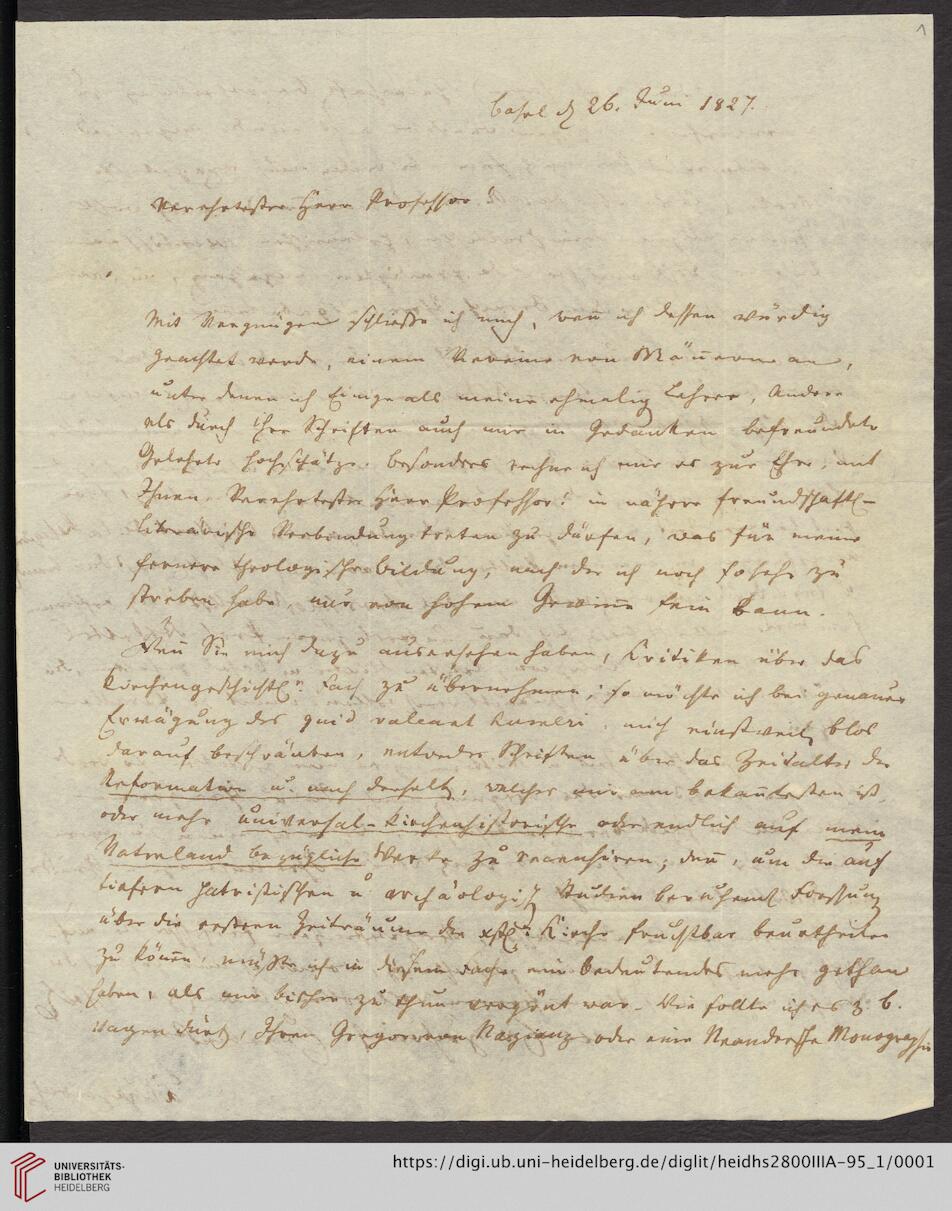 1
Basel d. 26. Juni 1827.
Verehrtester Herr Professor
Mit Vergnügen schließe ich mich, wen̄ ich dessen würdig
geachtet werde, einem Vereine von Män̄ern an,
unter denen ich Einige als meine ehmalig. Lehrer, Andere
als durch ihre Schriften auch mir in Gedanken befreundete
Gelehrte hochschätze. Besonders rechne ich mir es zur Ehre, mit
Ihnen, Verehrtester Herr Professor! in nähere freundschaftl-
literärische Verbindung treten zu dürfen, was für meine
fernere theologische Bildung, nach der ich noch so sehr zu
streben habe, nur von hohem Gewin̄e sein kann.
Wen̄ Sie mich dazu ausersehen haben, Kritiken über das
Kirchengeschichtl. Fach zu übernehmen, so möchte ich bei genauer
Erwägung des quid valeant humeri, mich einstweil. blos
darauf beschränken, entweder Schriften über das Zeitalter der
Reformation u. nach derselb., welches mir am bekan̄testen ist
oder mehr universal-kirchenhistorische oder endlich auf mein
Vaterland bezügliche Werke zu recensiren; den̄, um die auf
tiefern patristischen u. archäologisch. Studien beruhende Forschung
über die ersten Zeiträume der xstl. Kirche fruchtbar beurtheilen
zu kön̄en, müßte ich in diesem Fache ein bedeutendes mehr gethan
haben, als mir bisher zu thun vergön̄t war. Wie sollte ich es z. B.
wagen dürf., Ihren Gregor von Nazianz oder eine Neandersche Monographie
UNIVERSITÄTS-
BIBLIOTHEK
HEIDELBERG
https://digi.ub.uni-heidelberg.de/diglit/heidhs2800IIIA-95_1/0001